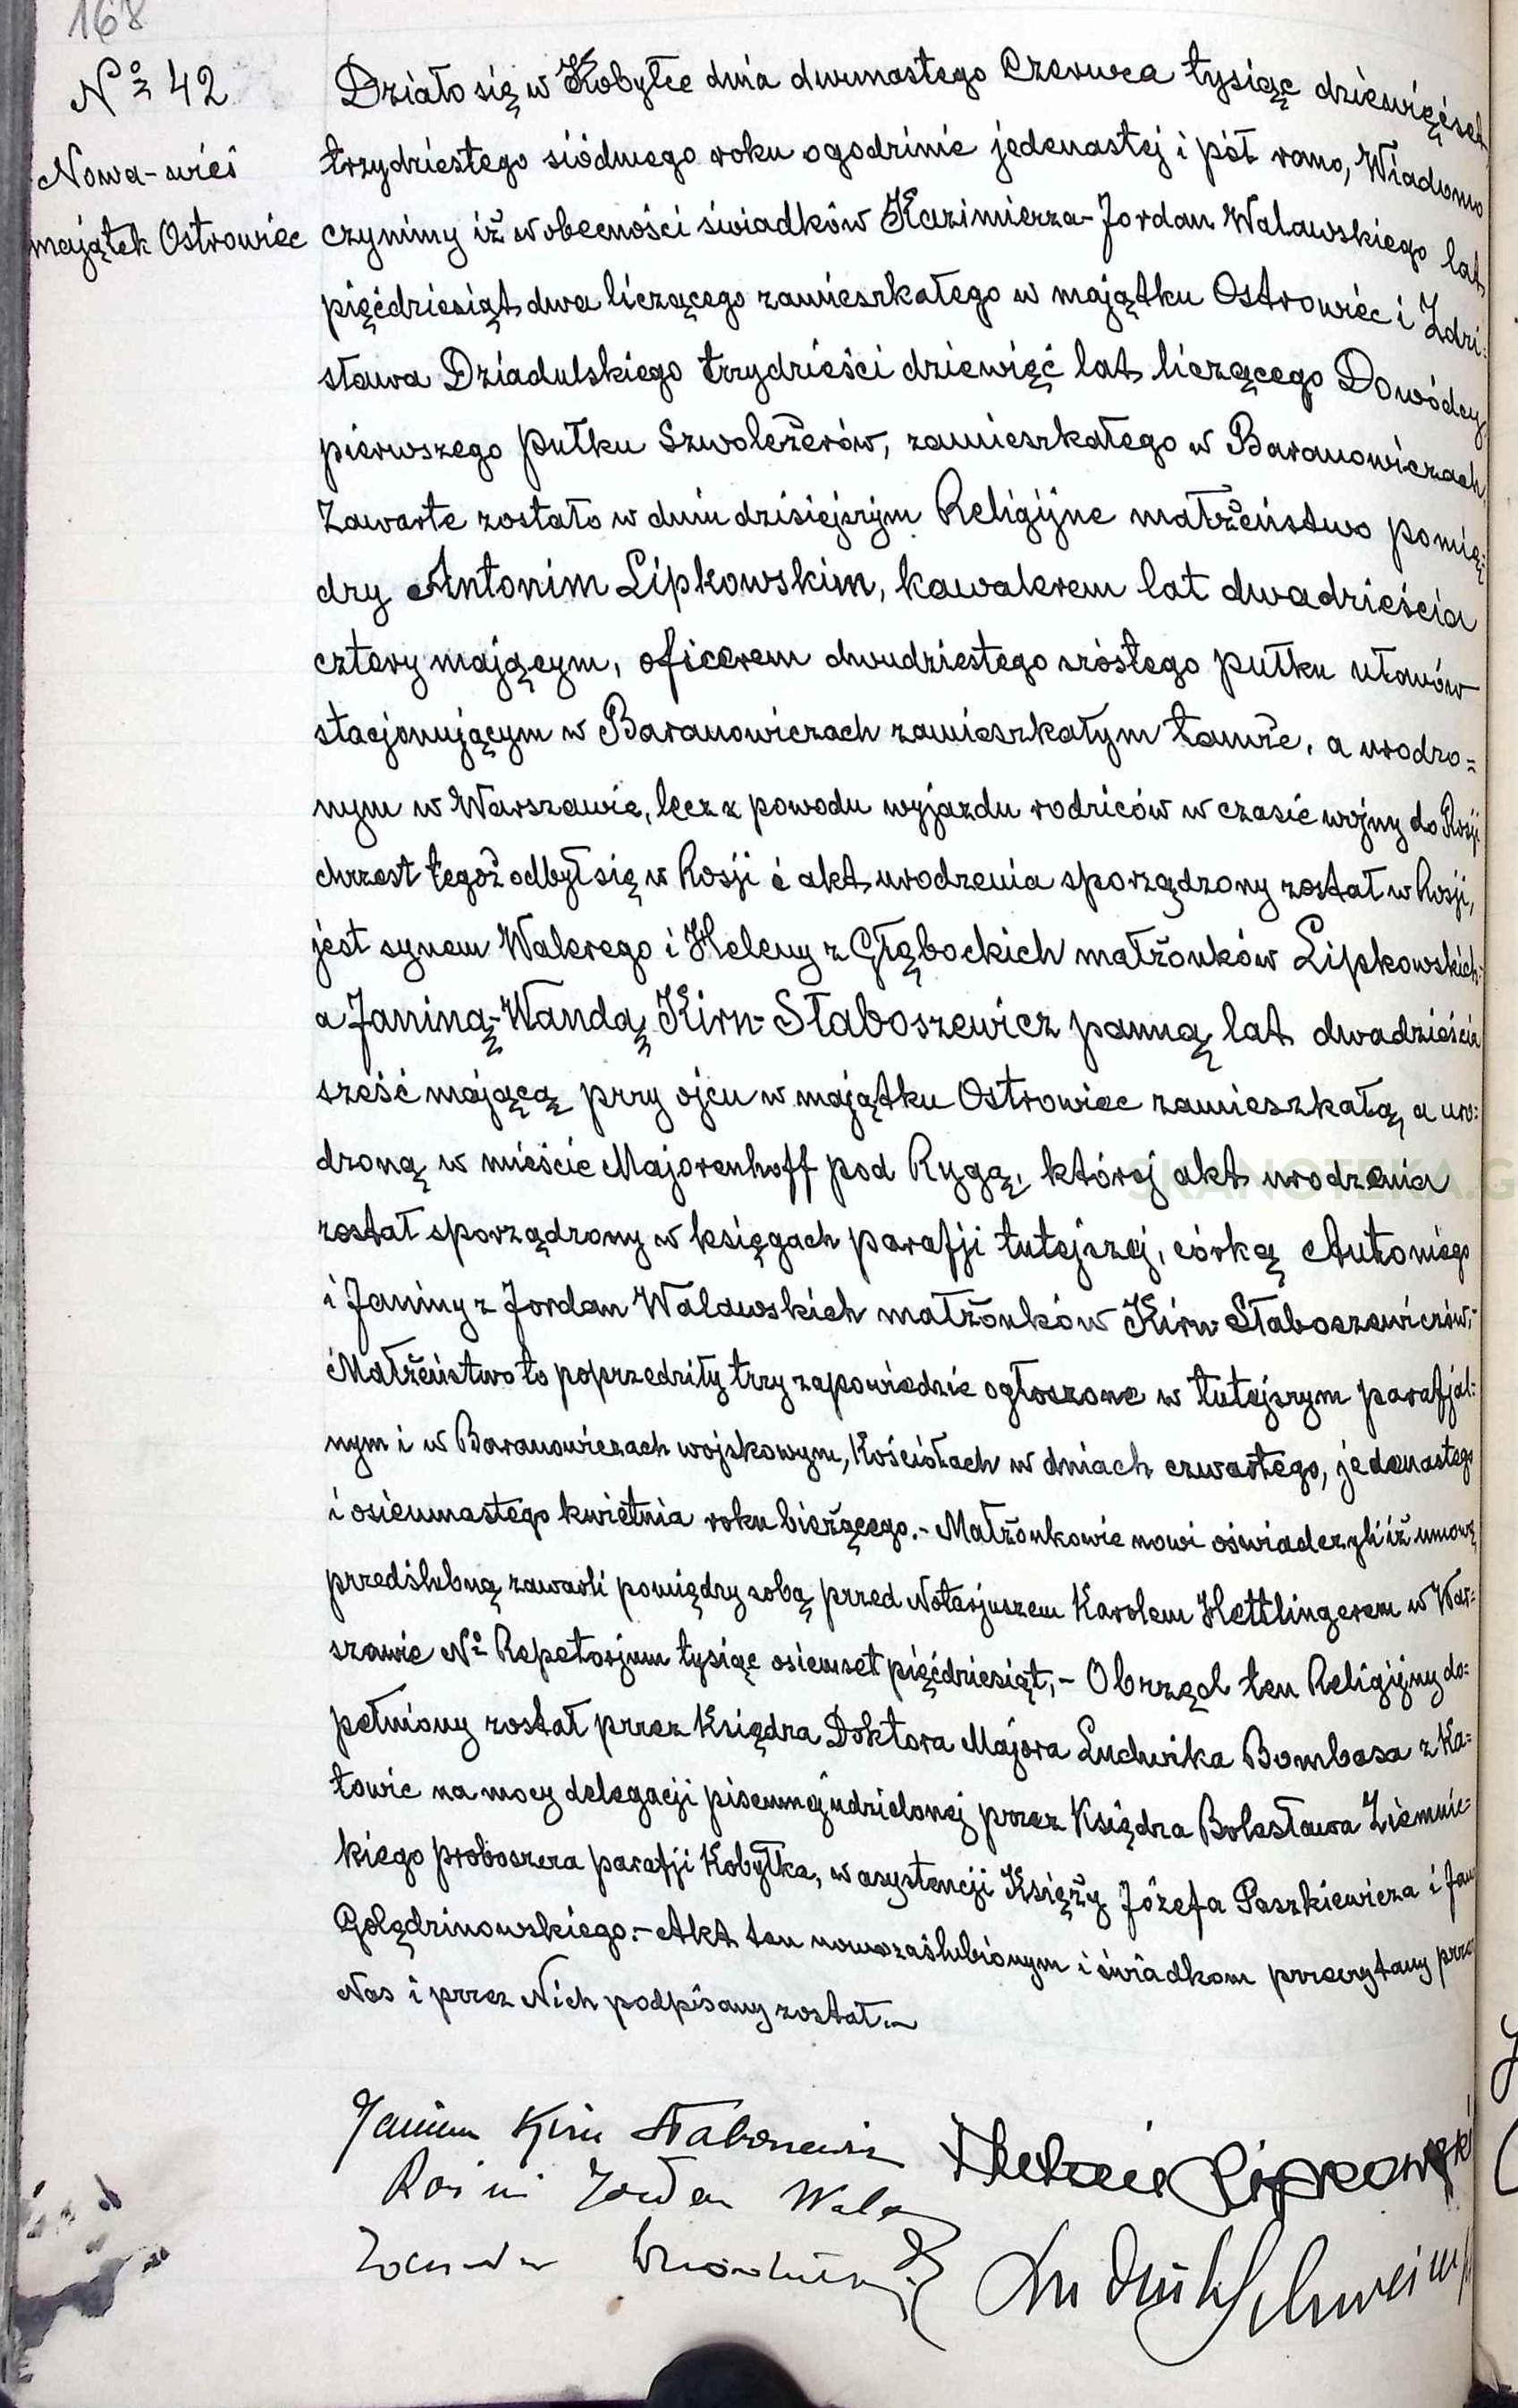 168
Nº 42
Nowa-wieś
majątek Ostrowiec
Działo się w Kobyłce dnia dwunastego Czerwca tysiąc dziewięćset
trzydziestego siódmego roku o godzinie jedenastej i pół rano, Wiadomo
czynimy iż w obecności świadków Kazimierza-Jordan Walawskiego lat
pięćdziesiąt dwa liczącego zamieszkałego w majątku Ostrowiec i Zdzi-
sława Dziadulskiego trzydzieści dziewięć lat liczącego Dowódcy
pierwszego pułku Szwoleżerów, zamieszkałego w Baranowiczach
Zawarte zostało w dniu dzisiejszym Religijne małżeństwo pomię-
dzy Antonim Lipkowskim, kawalerem lat dwadzieścia
cztery mającym, oficerem dwudziestego szóstego pułku ułanów
stacjonującym w Baranowiczach zamieszkałym tamże, a urodzo=
nym w Warszawie, lecz z powodu wyjazdu rodziców w czasie wojny do Rosji
chrzest tegoż odbył się w Rosji i akt urodzenia sporządzony został w Rosji,
jest synem Walerego i Heleny z Głębockich małżonków Lipkowskich:
a Janiną-Wandą Kirn-Słaboszewicz panną lat dwadzieścia
sześć mającą przy ojcu w majątku Ostrowiec zamieszkałą, a uro:
dzoną w mieście Majorenhoff pod Rygą, której akt urodzenia
został sporządzony w księgach parafji tutejszej, córką Antoniego
i Janiny z Jordan Walawskich małżonków Kirn Słaboszewiczów,-
Małżeństwo to poprzedziły trzy zapowiedzie ogłoszone w tutejszym parafjal:
nym i w Baranowiczach wojskowym, Kościołach w dniach czwartego, jedenastego
i osiemnastego kwietnia roku bieżącego.- Małżonkowie nowi oświadczyli iż umowę
przedślubną zawarli pomiędzy sobą przed Notarjuszem Karolem Hettlingerem w War=
szawie Nº Repetorjum tysiąc osiemset pięćdziesiąt,- Obrzęd ten Religijny do=
pełniony został przez Księdza Doktora Majora Ludwika Bombasa z Ka=
towic na mocy delegacji pisemnej udzielonej przez Księdza Bolesława Ziemnic=
kiego proboszcza parafji Kobyłka, w asystencji Księży Józefa Paszkiewicza i Jan
Golędzinowskiego.- Akt ten nowozaślubionym i świadkom przeczytany przez
Nas i przez Nich podpisany został.-
Janina Kirn Słaboszewicz
Antoni Lipkowski
Jordan
SKANOTEKA.G